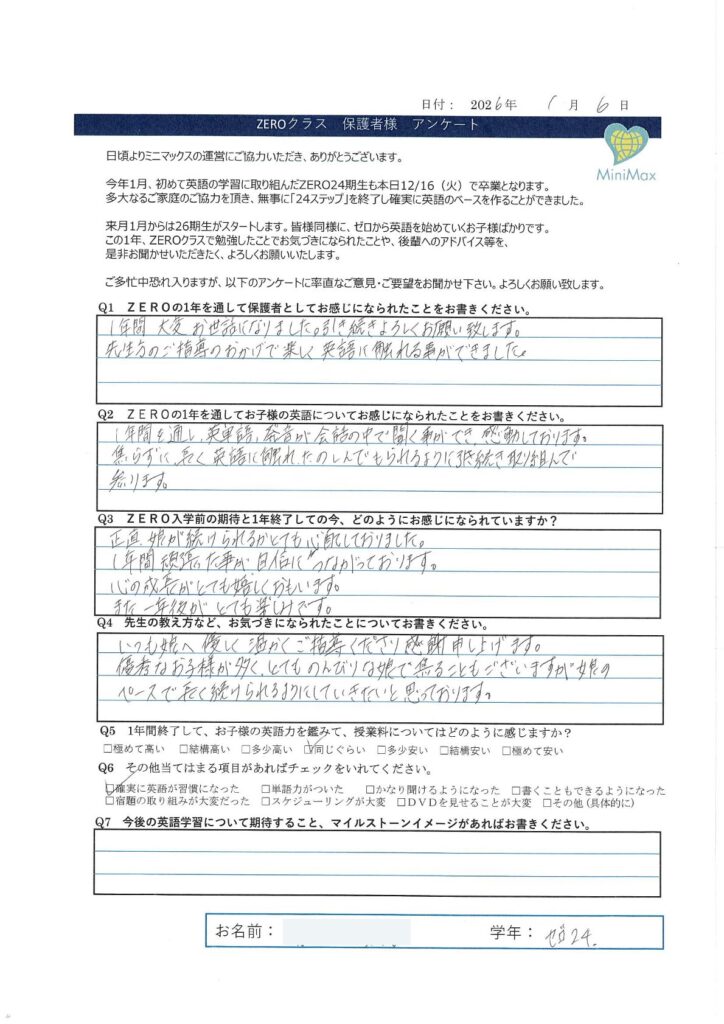 日付： 2026年 1月 6日
ZEROクラス　保護者様　アンケート
MiniMax
日頃よりミニマックスの運営にご協力いただき、ありがとうございます。
今年1月、初めて英語の学習に取り組んだZERO24期生も本日12/16（火）で卒業となります。
多大なるご家庭のご協力を頂き、無事に「24ステップ」を終了し確実に英語のベースを作ることができました。
来月1月からは26期生がスタートします。皆様同様に、ゼロから英語を始めていくお子様ばかりです。
この1年、ZEROクラスで勉強したことでお気づきになられたことや、後輩へのアドバイス等を、
是非お聞かせいただきたく、よろしくお願いいたします。
ご多忙中恐れ入りますが、以下のアンケートに率直なご意見・ご要望をお聞かせ下さい。よろしくお願い致します。
Q1　ＺＥＲＯの1年を通して保護者としてお感じになられたことをお書きください。
1年間 大変お世話になりました。引き続きよろしくお願い致します。
先生方のご指導のおかげで楽しく英語に触れる事ができました。
Q2　ＺＥＲＯの1年を通してお子様の英語についてお感じになられたことをお書きください。
1年間を通し、英単語、発音が会話の中で聞く事ができ、感動しております。
焦らずに、長く英語に触れ、たのしんでもらえるように引き続き取り組んで
参ります。
Q3　ＺＥＲＯ入学前の期待と1年終了しての今、どのようにお感じになられていますか？
正直、娘が続けられるかとても心配しておりました。
1年間頑張った事が自信につながっております。
心の成長がとても嬉しくおもいます。
また一年後がとても楽しみです。
Q4　先生の教え方など、お気づきになられたことについてお書きください。
いつも娘へ優しく温かくご指導くださり感謝申し上げます。
優秀なお子様が多く、とてものんびりな娘で焦ることもございますが娘の
ペースで長く続けられるようにしていきたいと思っております。
Q5　1年間終了して、お子様の英語力を鑑みて、授業料についてはどのように感じますか？
□極めて高い　□結構高い　□多少高い　☑同じぐらい　□多少安い　□結構安い　□極めて安い
Q6　その他当てはまる項目があればチェックをいれてください。
☑確実に英語が習慣になった　□単語力がついた　□かなり聞けるようになった　□書くこともできるようになった
□宿題の取り組みが大変だった　□スケジューリングが大変　□ＤＶＤを見せることが大変　□その他（具体的に）
Q7　今後の英語学習について期待すること、マイルストーンイメージがあればお書きください。
お名前：　学年：ゼロ24.